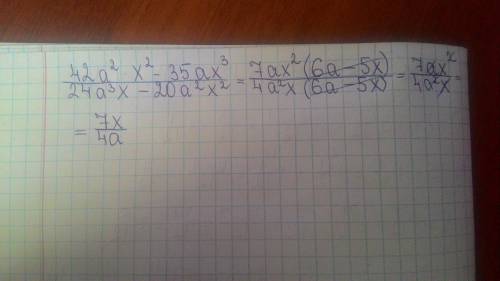 (42a² x² - 35ax³)/(24a³x - 20a²x²) = (7ax²(6a - 5x))/(4a²x(6a - 5x)) = (7ax²)/(4a²x) =
= (7x)/(4a)